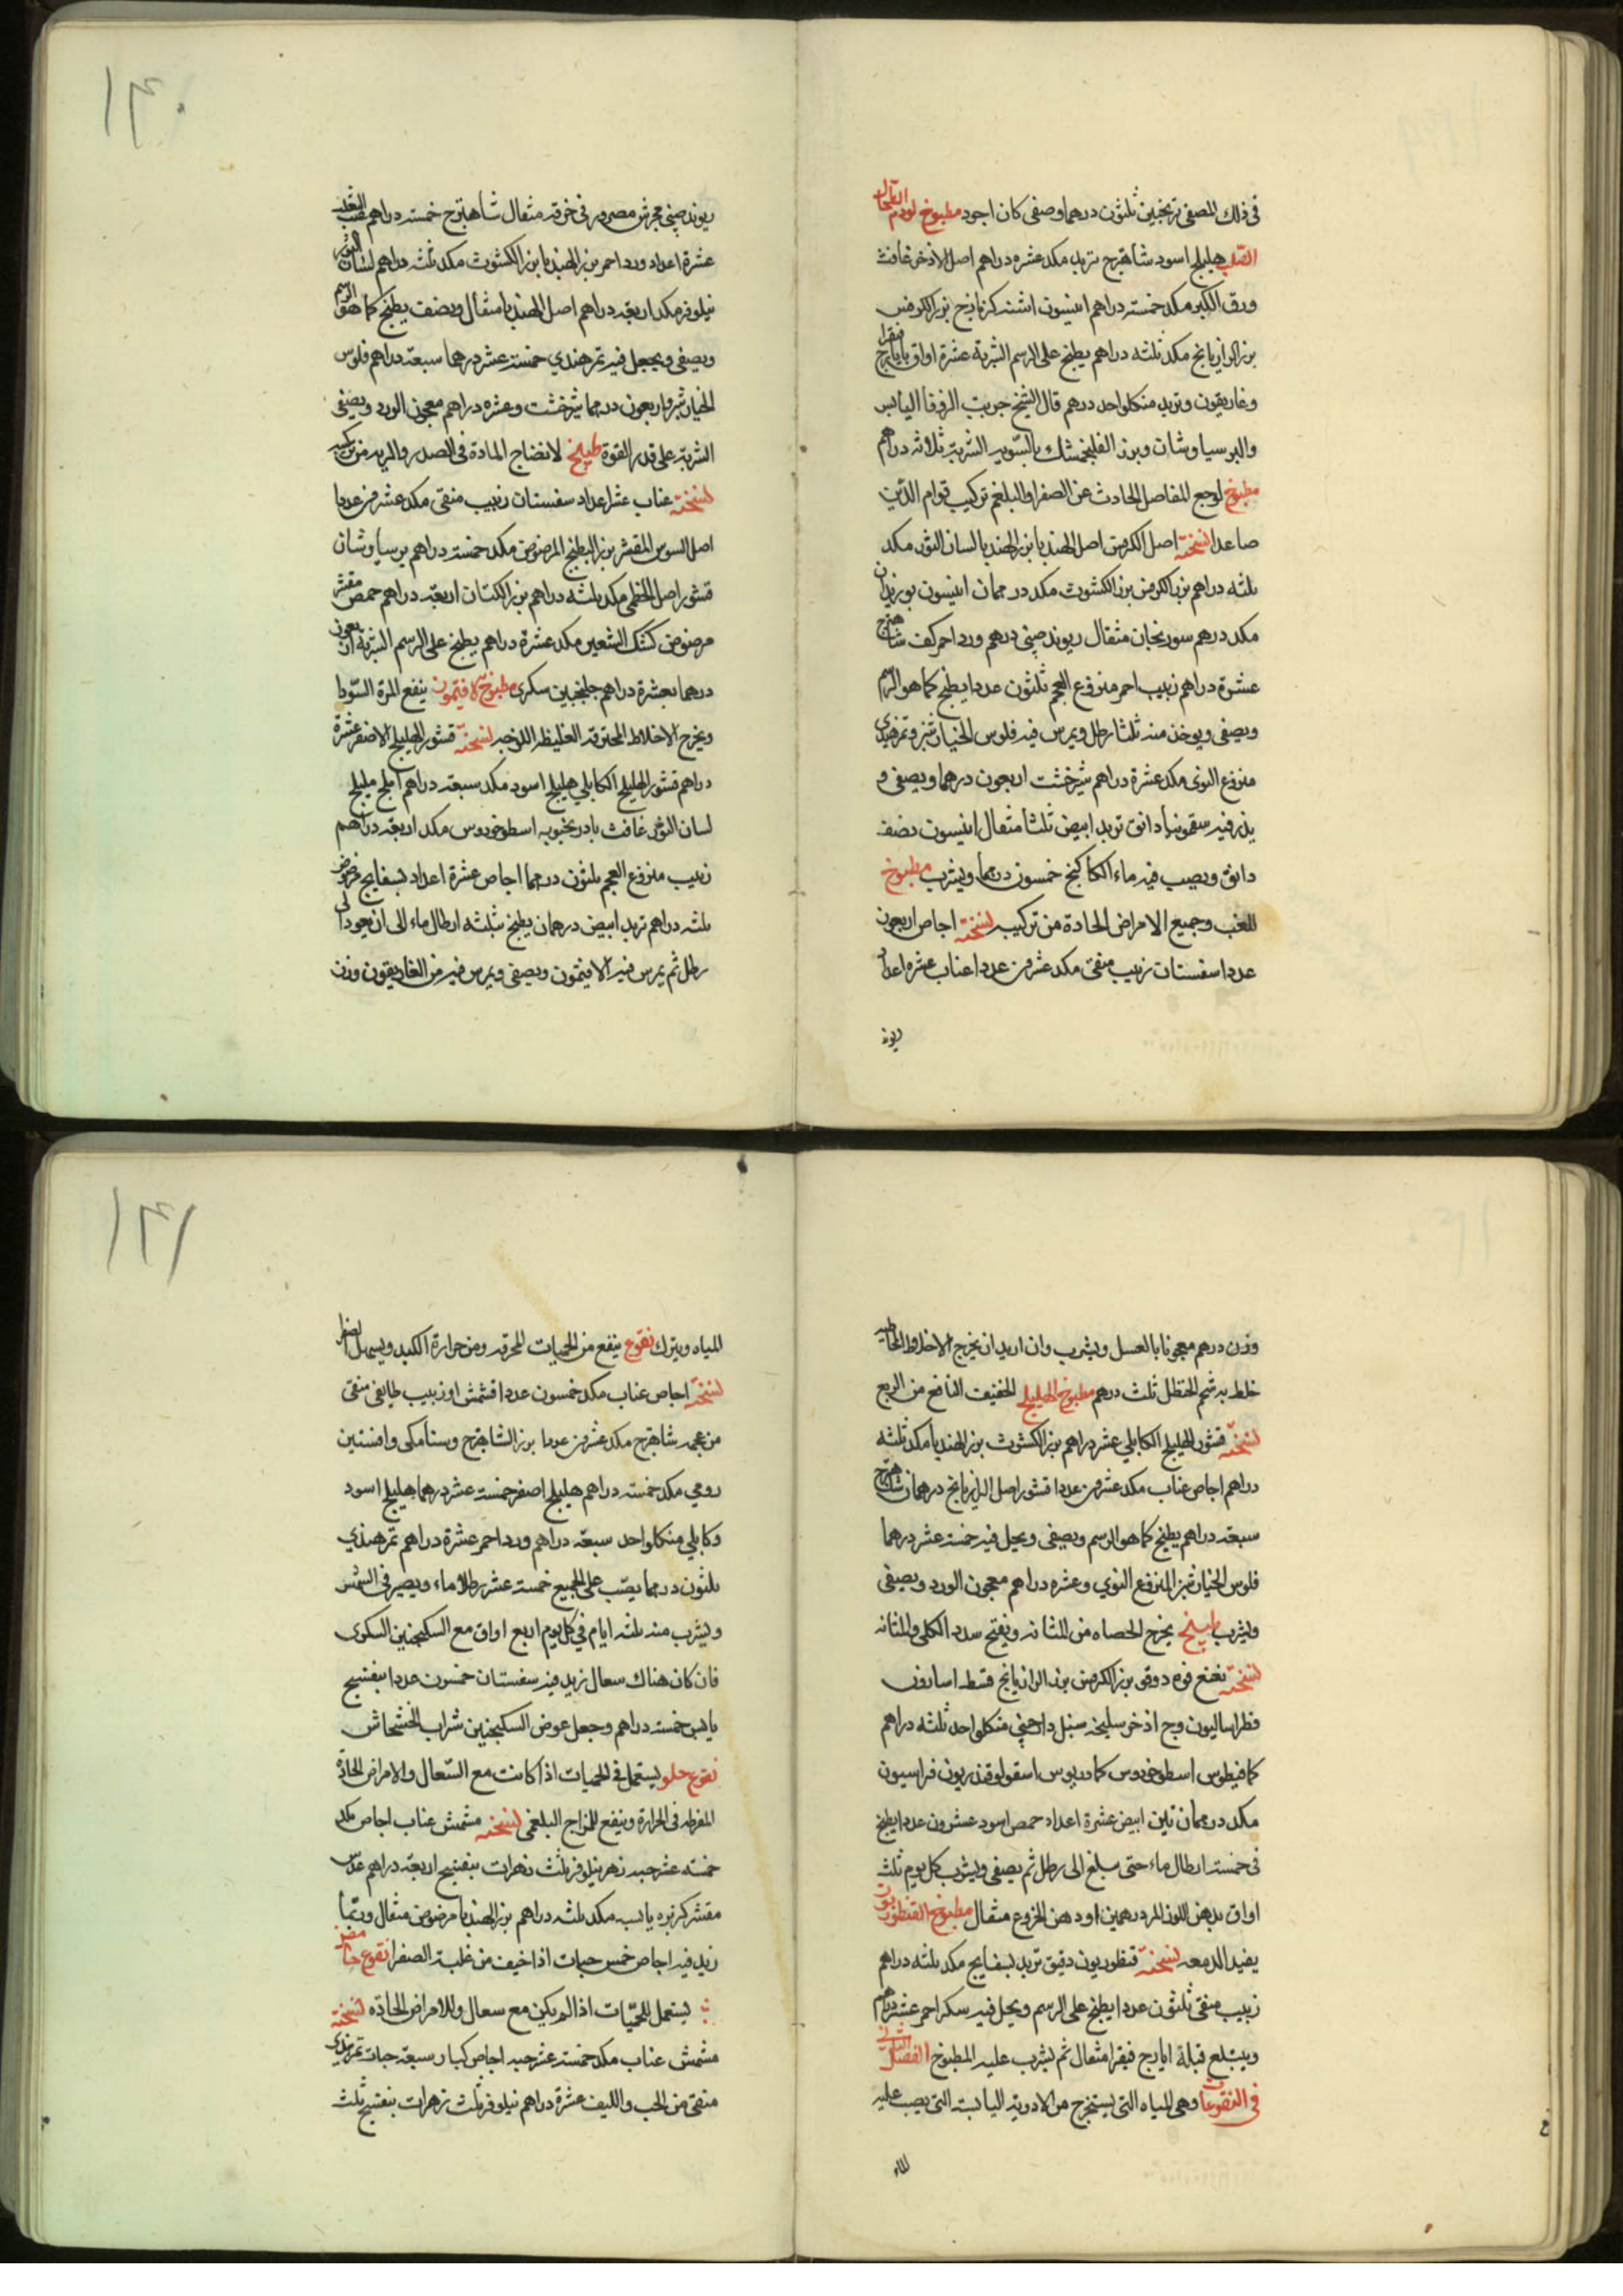 في ذلك المصفى ترنجبين ثلثون درهما وصفى كان اجود مطبوخ لورم الطحال
الصلب هليلج اسود شاهترج تربد مكد عشره دراهم اصل الاذخر غافث
ورق الكبر مكد خمسته دراهم انيسون اشنه كزمازج بزر الكرفس
بزر الرازيانج مكد ثلثه دراهم يطبخ على الرسم الشربة عشرة اواق بايارج فيقرا
وغاريقون وتربد من كلواحد درهم قال الشيخ جربت الزوفا اليابس
والبرسياوشان وبزر الفلنجمشك بالسوية الشربة ثلاثه دراهم
مطبوخ لوجع المفاصل الحادث عن الصفرا والبلغم تركيب قوام الدين
صاعدا نسخته اصل الكرفس اصل الهندبا بزر الهندبا لسان الثور مكد
ثلثه دراهم بزر الكرفس بزر الكشوث مكد درهمان انيسون بوزيدان
مكد درهم سورنجان مثقال ريوند صيني درهم ورد احمر كف شاهترج
عشرة دراهم زبيب احمر منزوع العجم ثلثون عددا يطبخ كما هو الرسم
ويصفى ويوخذ منه ثلثا رطل ويمرس فيه فلوس الخيارشنبر وتمرهندي
منزوع النوى مكد عشرة دراهم شيرخشت اربعون درهما ويصفى و
يذر فيه سقمونيا دانق تربد ابيض ثلثا مثقال انيسون نصف
دانق ويصب فيه ماء الكاكنج خمسون درهما ويشرب مطبوخ
للغب وجميع الامراض الحادة من تركيبه نسخته اجاص اربعون
عددا سفستان زبيب منقى مكد عشرين عددا عناب عشره اعداد
ريوند
ريوند صيني مجرش مصرور في خرقه مثقال شاهترج خمسته دراهم
عشرة اعداد ورد احمر بزر الهندبا بزر الكشوث مكد ثلثه دراهم لسان الثور
نيلوفر مكد اربعه دراهم اصل الهندبا مثقال ونصف يطبخ كما هو الرسم
ويصفى ويجعل فيه تمر هندي خمسته عشر درهما سبعة دراهم فلوس
الخيارشنبر واربعون درهما شيرخشت وعشره دراهم معجون الورد ويصفى
الشربة على قدر القوة طبيخ لانضاج المادة في الصدر والريه من تركيبه
نسخته عناب عشر اعداد سفستان زبيب منقى مكد عشرين عددا
اصل السوس المقشر بزر البطيخ المرضوض مكد خمسته دراهم برسياوشان
قشور اصل الخطمى مكد ثلثه دراهم بزر الكتان اربعه دراهم حمص مقشر
مرضوض كشك الشعير مكد عشرة دراهم يطبخ على الرسم الشربة اربعون
درهما بعشرة دراهم جلنجبين سكرى مطبوخ الافتيمون ينفع المرة السودا
ويخرج الاخلاط المحترقه الغليظه اللزجه نسخته قشور الهليلج الاصفر عشرة
دراهم قشور الهليلج الكابلي هليلج اسود مكد سبعه دراهم املج بليلج
لسان الثور غافث بادرنجبويه اسطوخودوس مكد اربعه دراهم
زبيب منزوع العجم ثلثون درهما اجاص عشرة اعداد بسفايج مرضوض
ثلثه دراهم تربد ابيض درهمان يطبخ بثلثه ارطال ماء الى ان يعود الى
رطل ثم يمرس فيه الافيتمون ويصفى ويمرس فيه من الغاريقون وزن
وزن درهم معجونا بالعسل ويشرب وان اريد ان يخرج الاخلاط الخاطيه
خلط به شحم الحنظل ثلث درهم مطبوخ الهليلج الخفيف النافع من الربع
نسخته قشور الهليلج الكابلي عشر دراهم بزر الكشوث بزر الهندبا مكد ثلثه
دراهم اجاص عناب مكد عشرين عددا قشور اصل الرازيانج درهمان شاهترج
سبعه دراهم يطبخ كما هو الرسم ويصفى ويحل فيه خمسته عشر درهما
فلوس الخيارشنبر المنزوع النوي وعشره دراهم معجون الورد ويصفى
ويشرب طبيخ يخرج الحصاه من المثانه ويفتح سدد الكلى والمثانه
نسخته نعنع فوه دوقو بزر الكرفس بزر الرازيانج قسط اسارون
فطراساليون وج اذخر سليخه سنبل دارصيني من كلواحد ثلثه دراهم
كمافيطوس اسطوخودوس كمادريوس اسقولوقندريون فراسيون
مكد درهمان تين ابيض عشرة اعداد حمص اسود عشرون عددا يطبخ
في خمسته ارطال ماء حتى يبلغ الى رطل ثم يصفى ويشرب كل يوم ثلث
اواق بدهن اللوز المر درهمين او دهن الخروع مثقال مطبوخ القنطوريون
يفيد الدمعه نسخته قنطوريون دقيق تربد بسفايج مكد ثلثه دراهم
زبيب منقى ثلثون عددا يطبخ على الرسم ويحل فيه سكر احمر عشر دراهم
ويبتلع قبلة ايارج فيقرا مثقال ثم يشرب عليه المطبوخ الفصل الثاني
في النقوعات وهي المياه التي يستخرج من الادوية اليابسة التي يصب عليه
الماء
المياه ويترك نقوع ينفع من الحميات المحرقه ومن حرارة الكبد ويسهل الصفرا
نسخته اجاص عناب مكد خمسون عددا قشمش او زبيب طايفي منقى
من عجمه شاهترج مكد عشرين عددا بزر الشاهترج وسنامكي وافسنتين
رومي مكد خمسته دراهم هليلج اصفر خمسته عشر درهما هليلج اسود
وكابلي من كلواحد سبعه دراهم ورد احمر عشرة دراهم تمرهندي
ثلثون درهما يصب على الجميع خمسته عشر رطلا ماء ويصير في الشمس
ويشرب منه ثلثه ايام في كل يوم اربع اواق مع السكنجبين السكرى
فان كان هناك سعال زيد فيه سفستان خمسون عددا بنفسج
يابس خمسته دراهم وجعل عوض السكنجبين شراب الخشخاش
نقوع حلو يستعمل في الحميات اذا كانت مع السعال والامراض الحادة
المفرطه في الحرارة وينفع للمزاج البلغمى نسخته مشمش عناب اجاص مكد
خمسته عشر حبه زهر نيلوفر ثلث زهرات بنفسج اربعه دراهم عدس
مقشر كزبره يابسه مكد ثلثه دراهم بزر الهندبا مرضوض مثقال وربما
زيد فيه اجاص خمس حبات اذا خيف من غلبة الصفرا نقوع حامض
يستعمل للحميات اذا لم يكن مع سعال وللامراض الحاده نسخته
مشمش عناب مكد خمسته عشر حبه اجاص كبار سبعه حبات تمرهندي
منقى من الحب والليف عشرة دراهم نيلوفر ثلث زهرات بنفسج ثلث